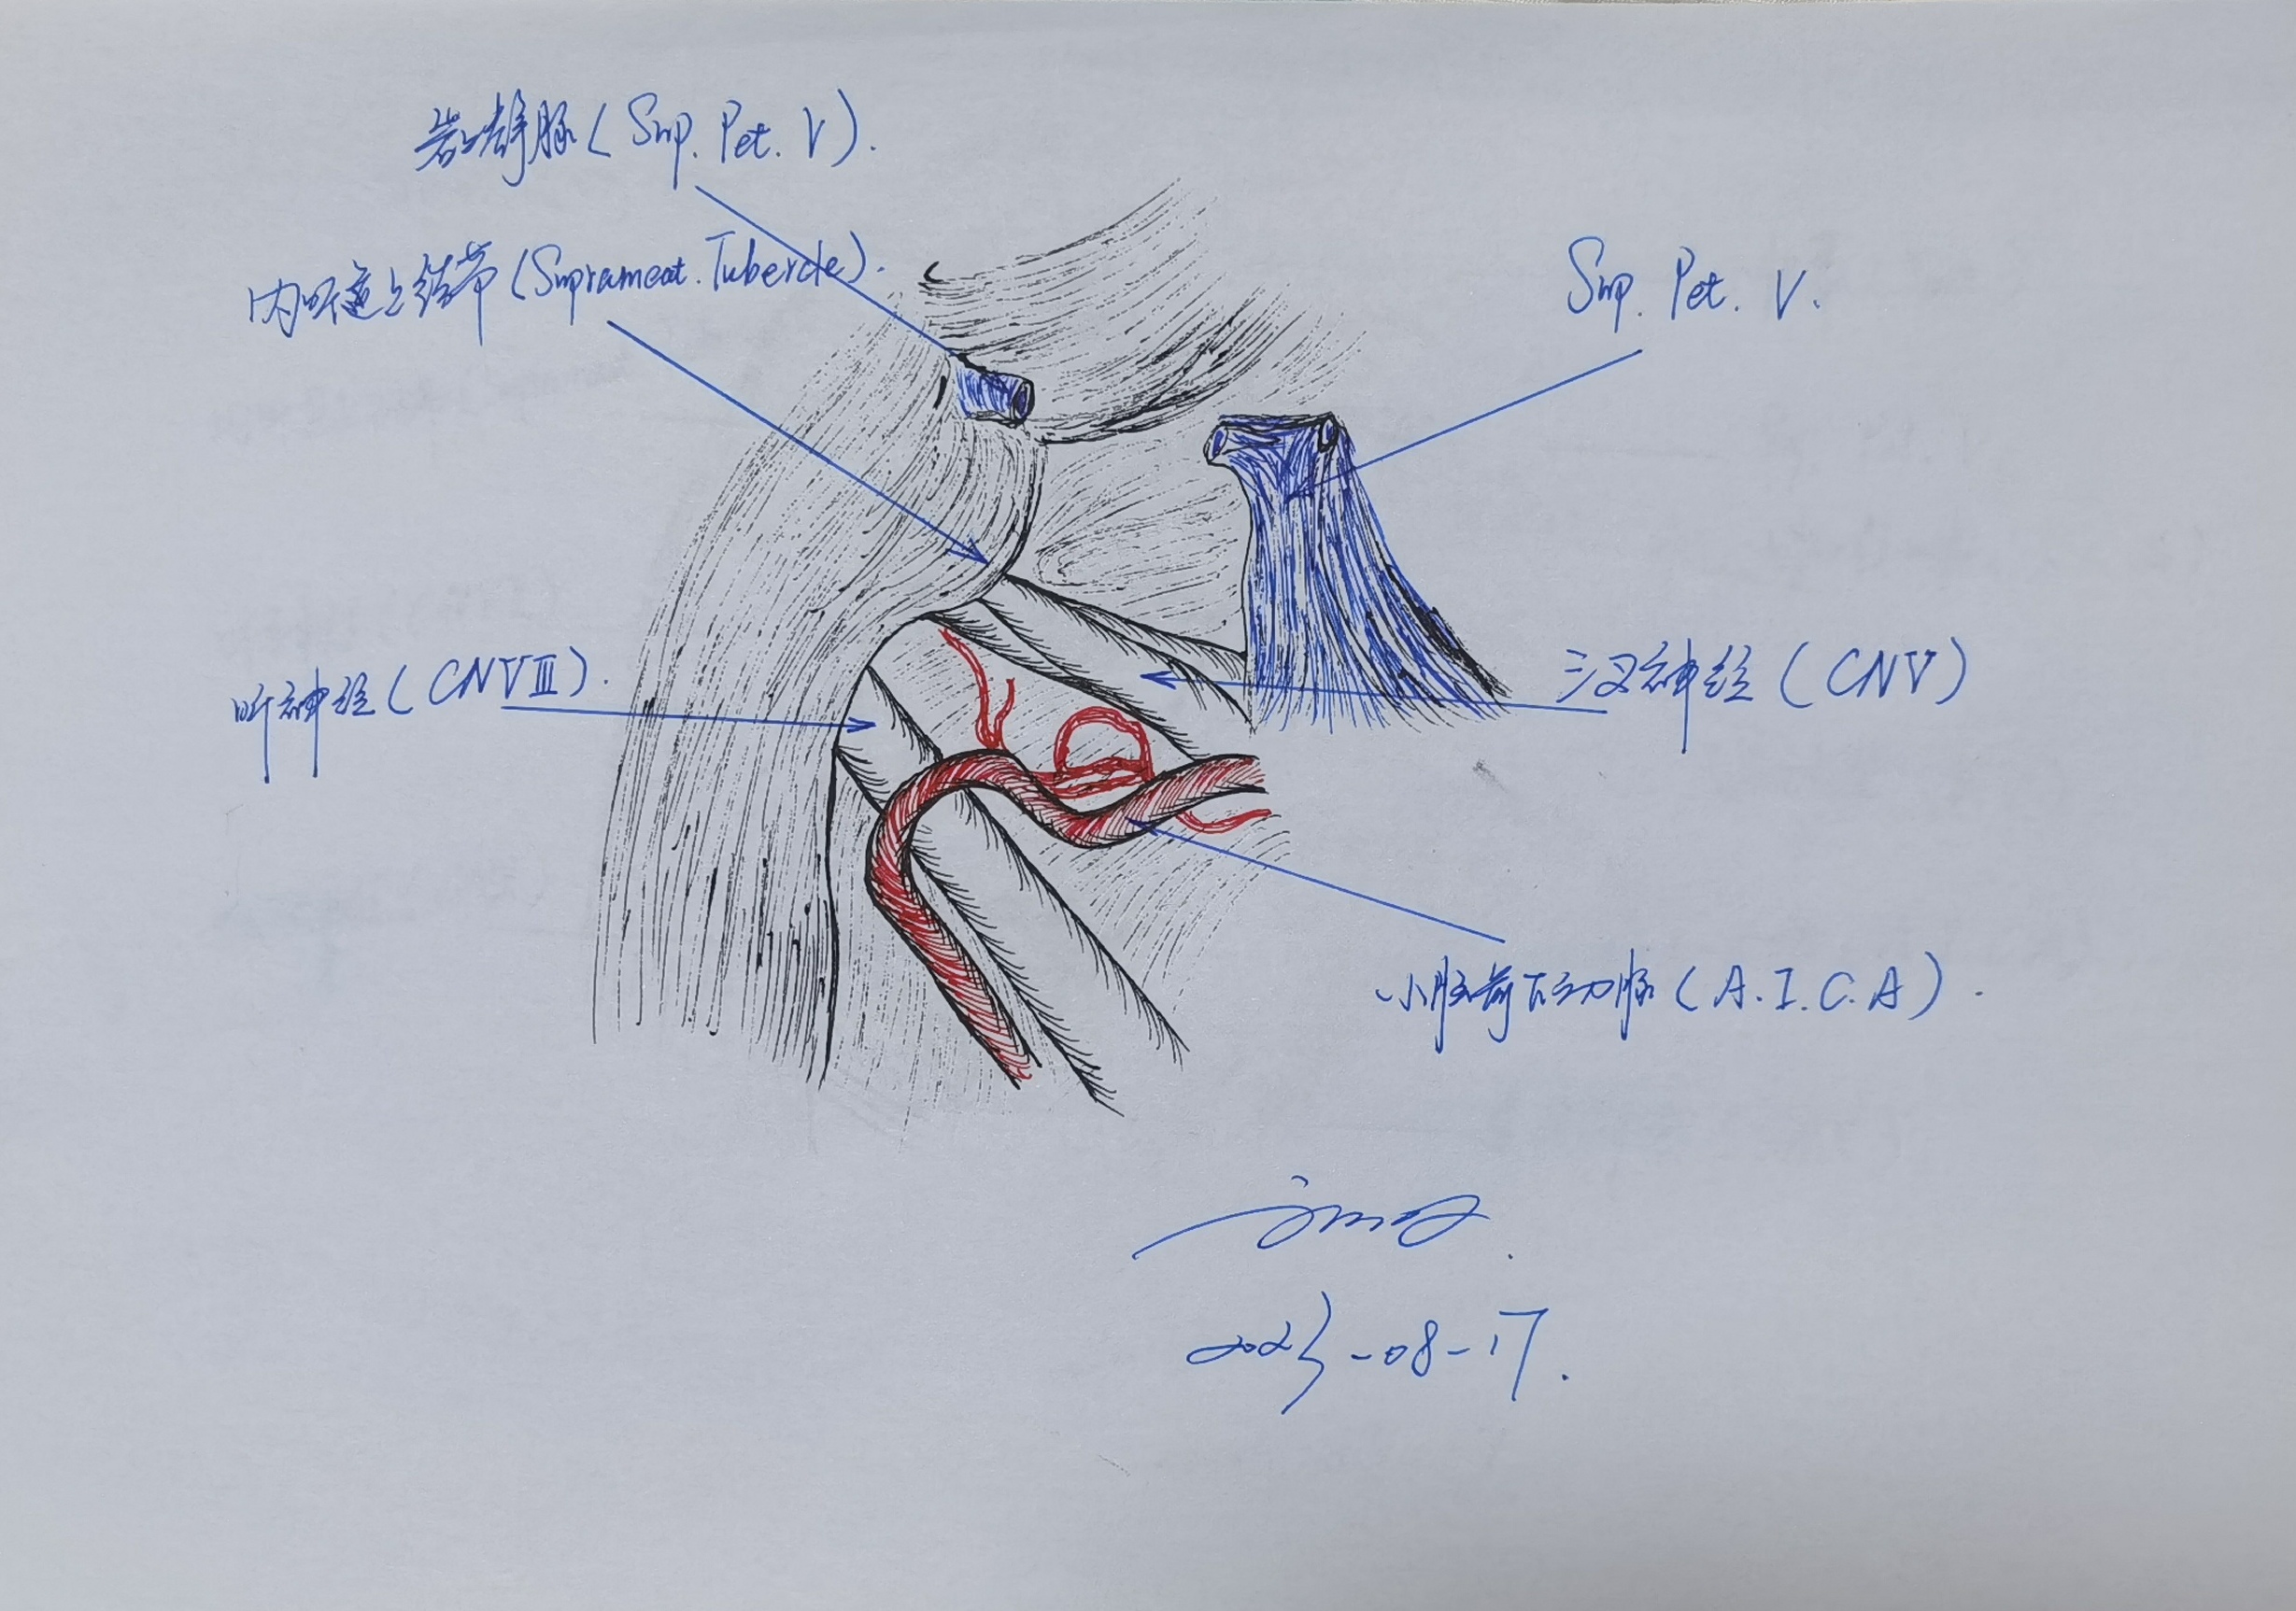 岩上静脉(Sup. Pet. V).
内听道上结节(Suprameat. Tubercle).
Sup. Pet. V.
听神经(CNVⅢ).
三叉神经(CNV)
小脑前下动脉(A.I.C.A).
2023-08-17.